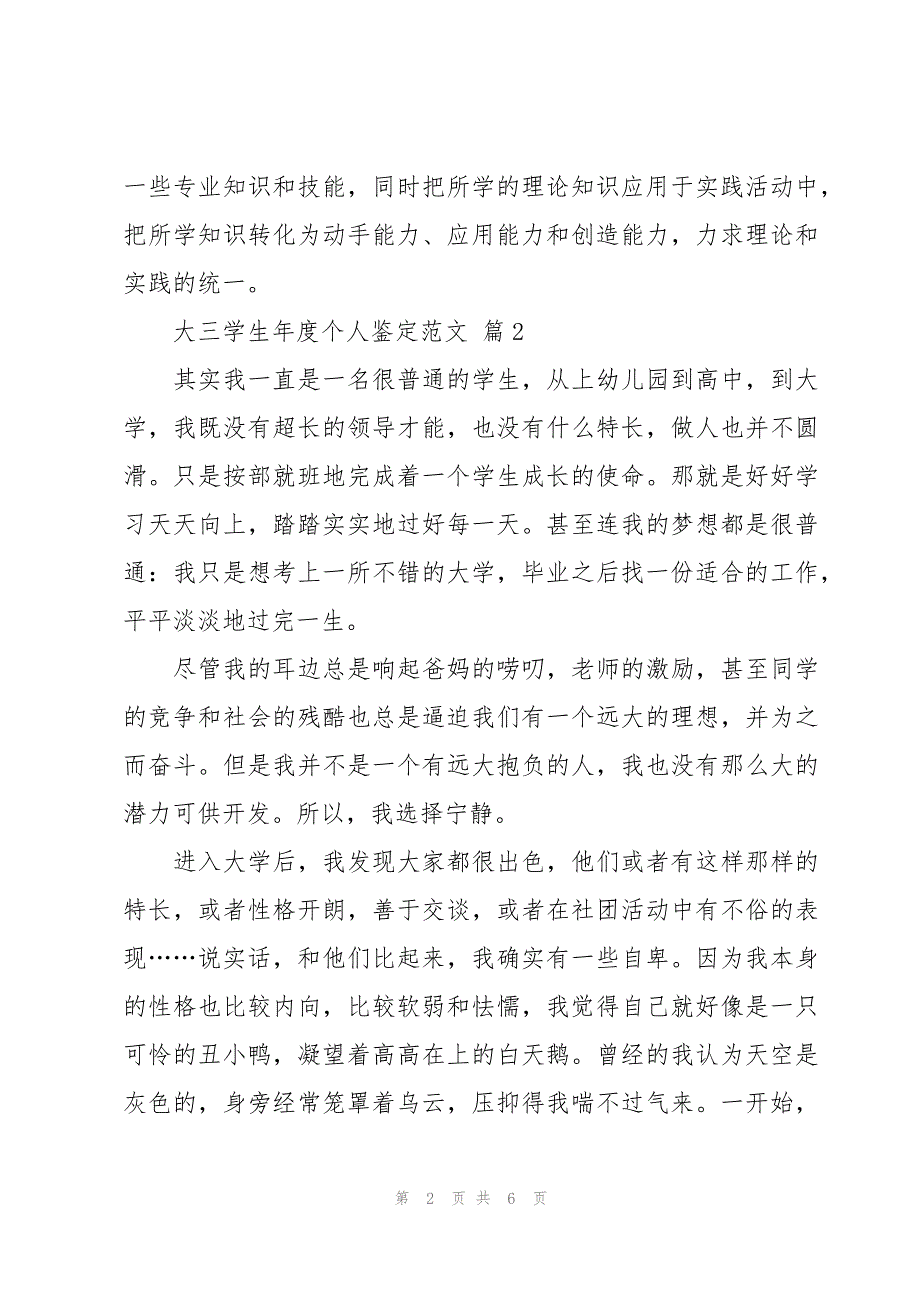 一些专业知识和技能，同时把所学的理论知识应用于实践活动中，
把所学知识转化为动手能力、应用能力和创造能力，力求理论和
实践的统一。
大三学生年度个人鉴定范文 篇2
其实我一直是一名很普通的学生，从上幼儿园到高中，到大
学，我既没有超长的领导才能，也没有什么特长，做人也并不圆
滑。只是按部就班地完成着一个学生成长的使命。那就是好好学
习天天向上，踏踏实实地过好每一天。甚至连我的梦想都是很普
通：我只是想考上一所不错的大学，毕业之后找一份适合的工作，
平平淡淡地过完一生。
尽管我的耳边总是响起爸妈的唠叨，老师的激励，甚至同学
的竞争和社会的残酷也总是逼迫我们有一个远大的理想，并为之
而奋斗。但是我并不是一个有远大抱负的人，我也没有那么大的
潜力可供开发。所以，我选择宁静。
进入大学后，我发现大家都很出色，他们或者有这样那样的
特长，或者性格开朗，善于交谈，或者在社团活动中有不俗的表
现……说实话，和他们比起来，我确实有一些自卑。因为我本身
的性格也比较内向，比较软弱和怯懦，我觉得自己就好像是一只
可怜的丑小鸭，凝望着高高在上的白天鹅。曾经的我认为天空是
灰色的，身旁经常笼罩着乌云，压抑得我喘不过气来。一开始，
第 2 页 共 6 页